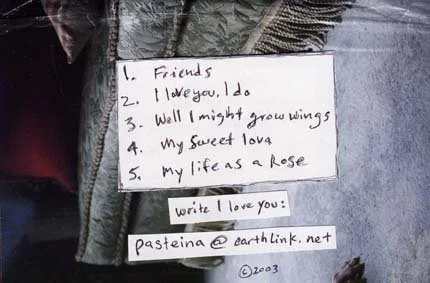 1. Friends
2. I love you, I do
3. Well I might grow wings
4. My Sweet love
5. My life as a Rose
write I love you:
pasteina@earthlink.net
©2003